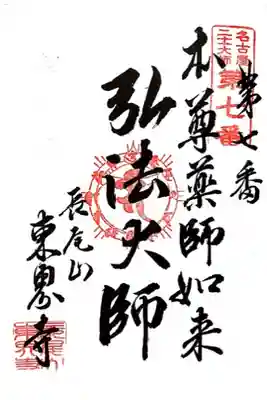 名古屋
二十一大師
第七番
第七番
本尊藥師如来
弘法大師
長尾山
東界寺